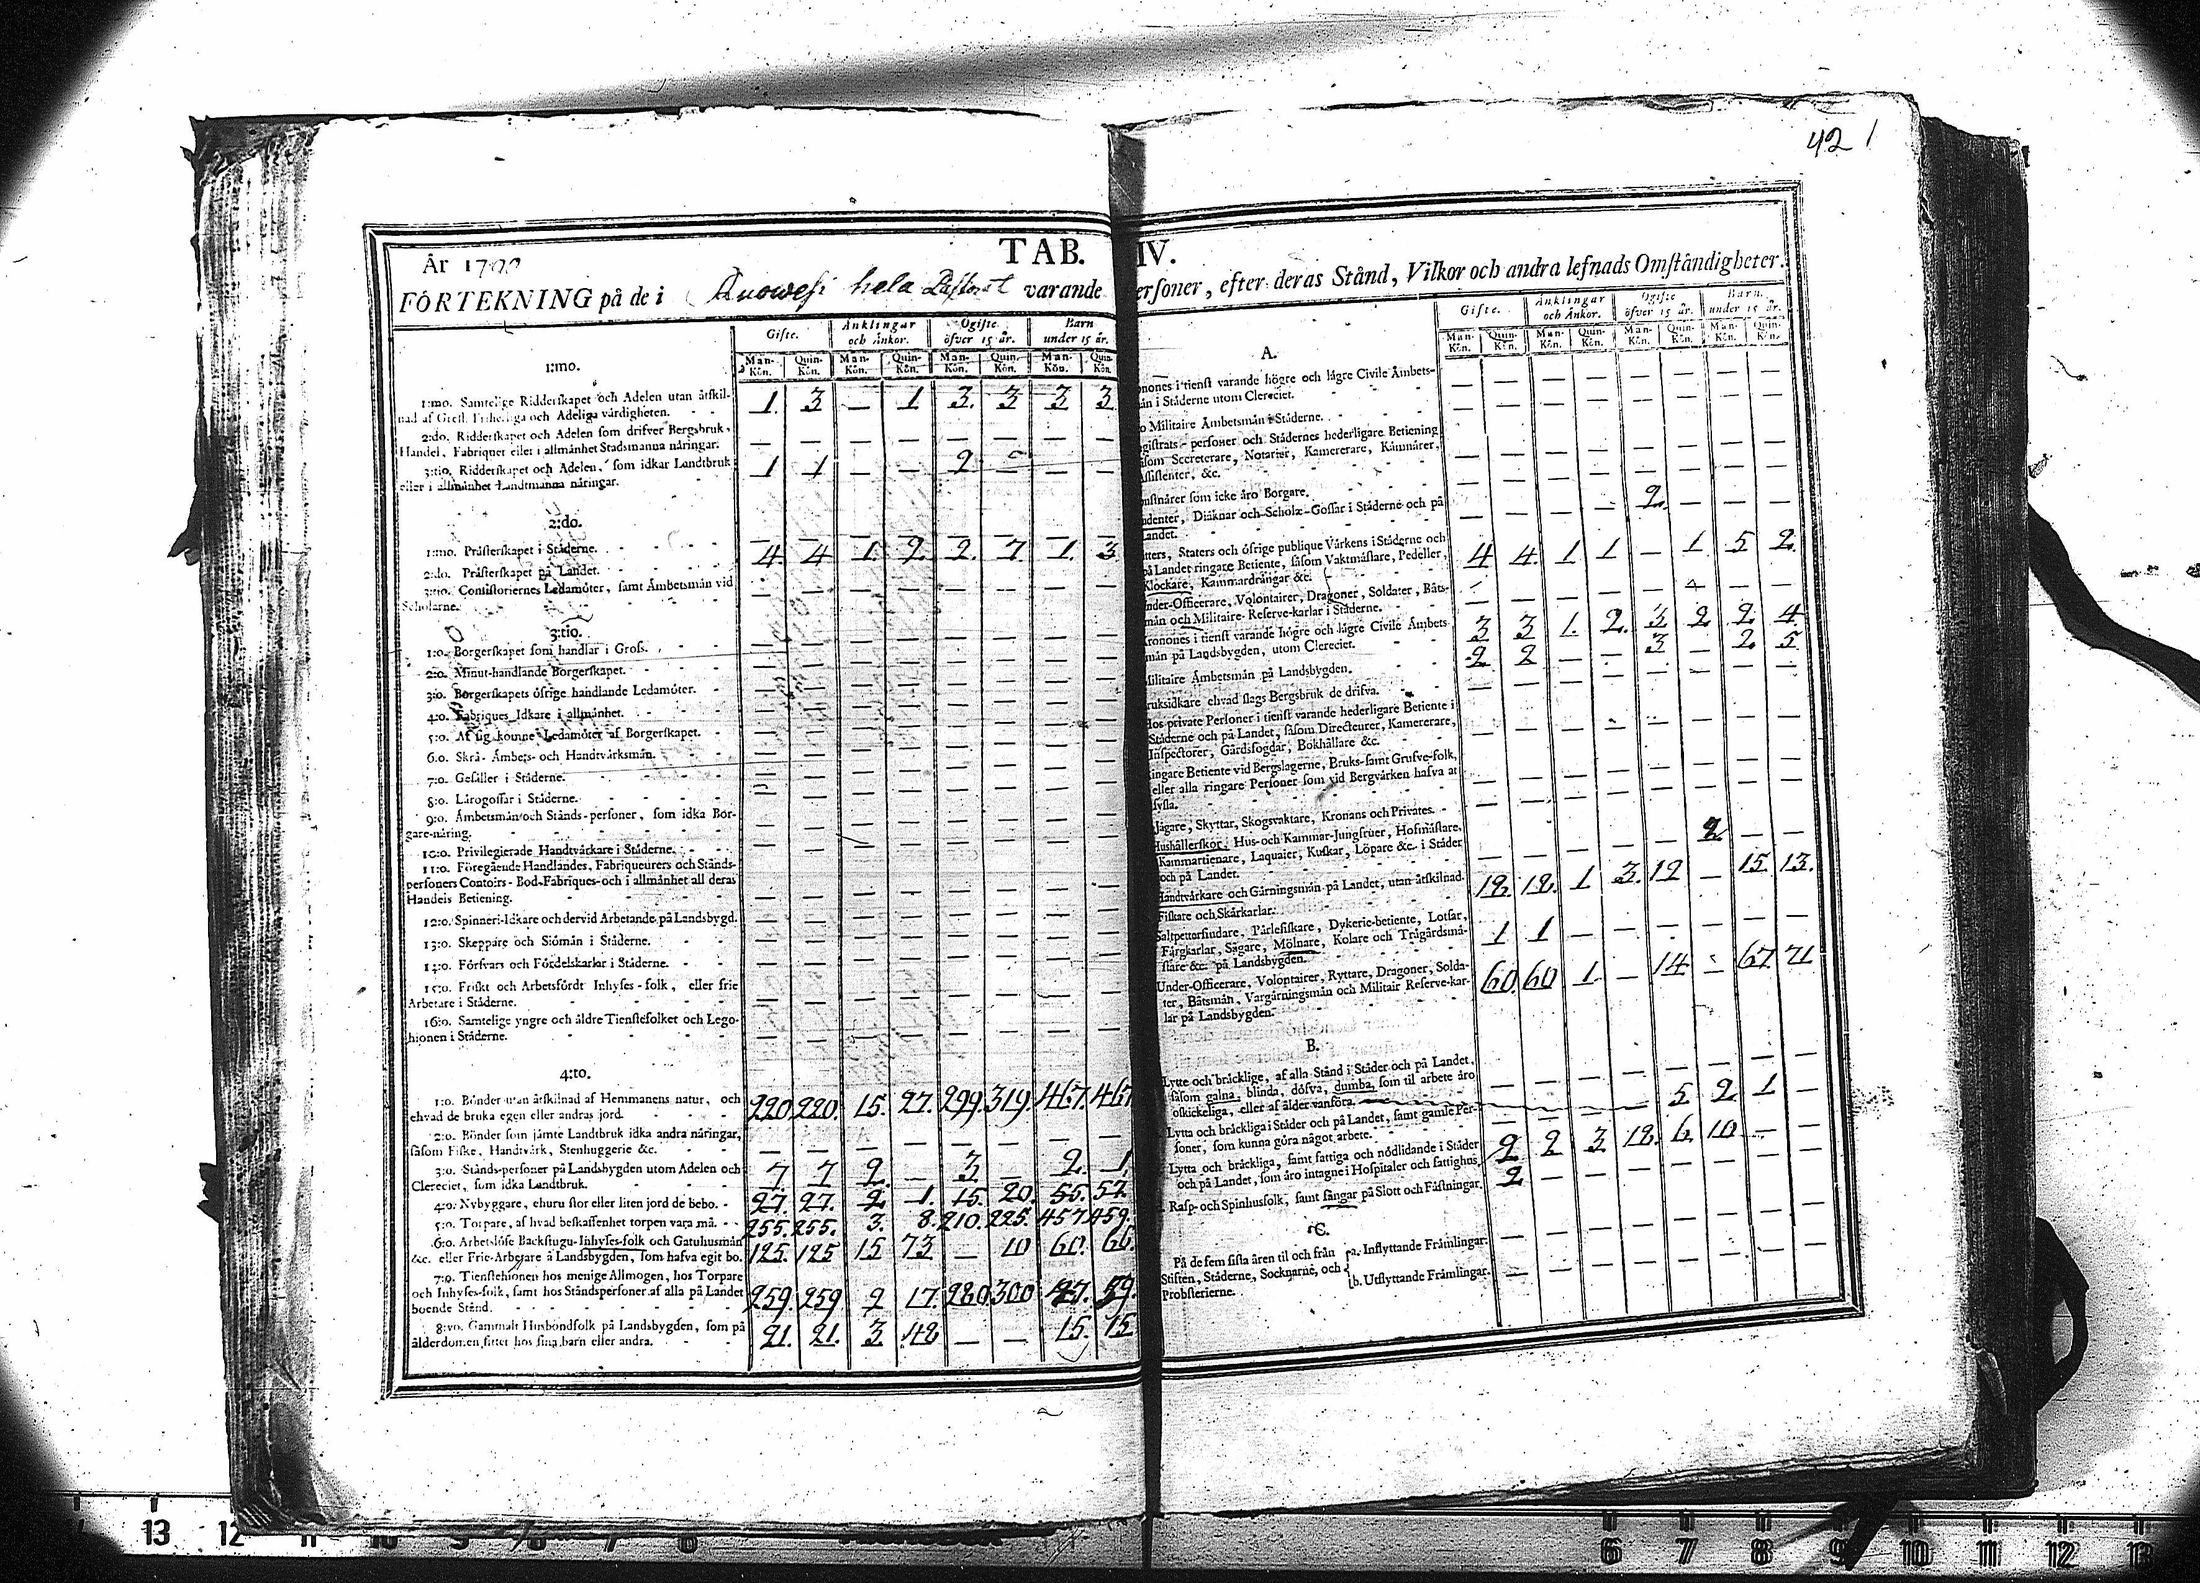 42
TAB. IV.
År 17
FÖRTEKNING på de i hela varande Personer, efter deras Stånd, Vilkor och andra lefnads Omständigheter.
Gifte. Änklingar och Änkor. Ogifte öfver 15 år. Barn under 15 år.
Man-Kön. Quin-Kön. Man-Kön. Quin-Kön. Man-Kön. Quin-Kön. Man-Kön. Quin-Kön.
1:mo.
1:mo. Samtelige Ridderskapet och Adelen utan åtskil-
nad af Grefl. Friherrliga och Adeliga värdigheten. 1. 3 — 1 3. 3 3 3
2:do. Ridderskapet och Adelen som drifver Bergsbruk,
Handel, Fabriquer eller i allmänhet Stadsmanna näringar. — — — — — — — —
3:tio. Ridderskapet och Adelen, som idkar Landtbruk
eller i allmänhet Landtmanna näringar. 1 1 — — 2 — — —
2:do.
1:mo. Prästerskapet i Städerne. — — — — — — — —
2:do. Prästerskapet på Landet. 4. 4 1. 2. 2. 7 1. 3
3:tio. Consistoriernes Ledamöter, samt Ämbetsmän vid
Scholarne. — — — — — — — —
3:tio.
1:o. Borgerskapet som handlar i Gross. — — — — — — — —
2:o. Minut-handlande Borgerskapet. — — — — — — — —
3:o. Borgerskapets öfrige handlande Ledamöter. — — — — — — — —
4:o. Fabriques Idkare i allmänhet. — — — — — — — —
5:o. Af sig komne Ledamöter af Borgerskapet. — — — — — — — —
6:o. Skrå-Ämbets- och Handtvärksmän. — — — — — — — —
7:o. Gesäller i Städerne. — — — — — — — —
8:o. Lärogossar i Städerne. — — — — — — — —
9:o. Ämbetsmän och Stånds-personer, som idka Bor-
gare-näring. — — — — — — — —
10:o. Privilegierade Handtvärkare i Städerne. — — — — — — — —
11:o. Föregående Handlandes, Fabriqueurers och Stånds-
personers Contoirs- Bod-Fabriques- och i allmänhet all deras
Handels Betiening. — — — — — — — —
12:o. Spinneri-Idkare och dervid Arbetande på Landsbygd. — — — — — — — —
13:o. Skeppare och Siömän i Städerne. — — — — — — — —
14:o. Försvars och Fördelskarlar i Städerne. — — — — — — — —
15:o. Friskt och Arbetsfördt Inhyses-folk, eller frie
Arbetare i Städerne. — — — — — — — —
16:o. Samtelige yngre och äldre Tienstefolket och Lego-
hionen i Städerne. — — — — — — — —
4:to.
1:o. Bönder utan åtskilnad af Hemmanens natur, och
ehvad de bruka egen eller andras jord. 220 220. 15. 27. 299. 319. 467. 467
2:o. Bönder som jämte Landtbruk idka andra näringar,
såsom Fiske, Handtvärk, Stenhuggerie &c. — — — — — — — —
3:o. Stånds-personer på Landsbygden utom Adelen och
Clereciet, som idka Landtbruk. 7. 7 2. — 3. — 2. 1.
4:o. Nybyggare, ehuru stor eller liten jord de bebo. 27. 27. 2 1. 15. 20. 55. 57
5:o. Torpare, af hvad beskaffenhet torpen vara må. 255. 255. 3. 8. 210. 225. 457. 459.
6:o. Arbetslöse Backstugu-Inhyses-folk och Gatuhusmän
&c. eller Frie-Arbetare å Landsbygden, som hafva egit bo. 125. 125 15 73 — 10 60. 66.
7:o. Tienstehionen hos menige Allmogen, hos Torpare
och Inhyses-folk, samt hos Ståndspersoner af alla på Landet
boende Stånd. 259. 259 2 17. 280 300 47. 59.
8:vo. Gammalt Husbondfolk på Landsbygden, som på
ålderdomen sitter hos sina barn eller andra. 21. 21. 3 48 — — 15. 15
Gifte. Änklingar och Änkor. Ogifte öfver 15 år. Barn under 15 år.
Man-Kön. Quin-Kön. Man-Kön. Quin-Kön. Man-Kön. Quin-Kön. Man-Kön. Quin-Kön.
A.
onones i tienst varande högre och lägre Civile Ämbets-
män i Städerne utom Clereciet. — — — — — — — —
o Militaire Ämbetsmän i Städerne. — — — — — — — —
gistrats-personer och Städernes hederligare Betiening
åsom Secreterare, Notarier, Kamererare, Kämnärer,
Assistenter, &c. — — — — — — — —
nstnärer som icke äro Borgare. — — — — — — — —
udenter, Diäknar och Scholæ-Gossar i Städerne och på
Landet. — — — — 2. — — —
tters, Staters och öfrige publique Värkens i Städerne och
på Landet ringare Betiente, såsom Vaktmästare, Pedeller,
Klockare, Kammardrängar &c. 4 4. 1 1 — 1. 5 2.
nder-Officerare, Volontairer, Dragoner, Soldater, Båts-
män och Militaire-Reserve-karlar i Städerne. — — — — — — — —
Kronones i tienst varande högre och lägre Civile Ämbets-
män på Landsbygden, utom Clereciet. 3 3 1. 2. 3 2 2 4.
Militaire Ämbetsmän på Landsbygden. 2 2 — — 3 — 2. 5
ruksidkare ehvad slags Bergsbruk de drifva. — — — — — — — —
Hos private Personer i tienst varande hederligare Betiente i
Städerne och på Landet, såsom Directeurer, Kamererare,
Inspectorer, Gårdsfogdar, Bokhållare &c. — — — — — — — —
ingare Betiente vid Bergslagerne, Bruks- samt Grufve-folk,
eller alla ringare Personer som vid Bergvärken hafva at
syssla. — — — — — — — —
Jägare, Skyttar, Skogsvaktare, Kronans och Privates. — — — — — — — —
Hushållerskor, Hus- och Kammar-Jungfruer, Hofmästare,
Kammartienare, Laquaier, Kuskar, Löpare &c. i Städer
och på Landet. — — — — — 2 — —
Handtvärkare och Gärningsmän på Landet, utan åtskilnad. 12. 12. 1 3. 12 — 15. 13.
Fiskare och Skärkarlar. — — — — — — — —
Saltpettersiudare, Pärlefiskare, Dykerie-betiente, Lotsar,
Färgkarlar, Sågare, Mölnare, Kolare och Trägårdsmä-
stare &c. på Landsbygden. 1 1 — — — — — —
Under-Officerare, Volontairer, Ryttare, Dragoner, Solda-
ter, Båtsmän, Vargärningsmän och Militair Reserve-kar-
lar på Landsbygden. 60. 60 1. — 14 — 67. 71
B.
Lytte och bräcklige, af alla Stånd i Städer och på Landet,
såsom galna, blinda, döfva, dumba, som til arbete äro
oskickeliga, eller af ålder vanföra. — — — — 5 2 1 —
Lytta och bräckliga i Städer och på Landet, samt gamle Per-
soner, som kunna göra något arbete. 2 2 3 18. 6. 10 — —
Lytta och bräckliga, samt fattiga och nödlidande i Städer
och på Landet, som äro intagne i Hospitaler och fattighus. 2 — — — — — — —
Rasp- och Spinhusfolk, samt fångar på Slott och Fästningar.
C.
På de fem sista åren til och från
Stiften, Städerne, Socknarne, och
Probsterierne.
a. Inflyttande Främlingar. — — — — — — — —
b. Utflyttande Främlingar. — — — — — — — —
13 12 11 10 9 8 7 6
6 7 8 9 10 11 12 13